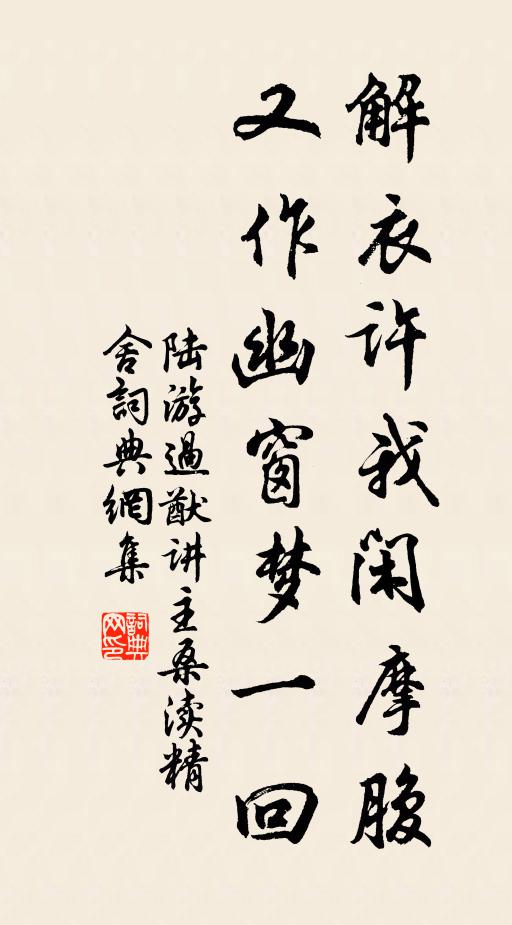 解衣许我闲摩腹
又作幽窗梦一回
陆游過猷讲主桑渎精
舍詞典網集
詞典网印